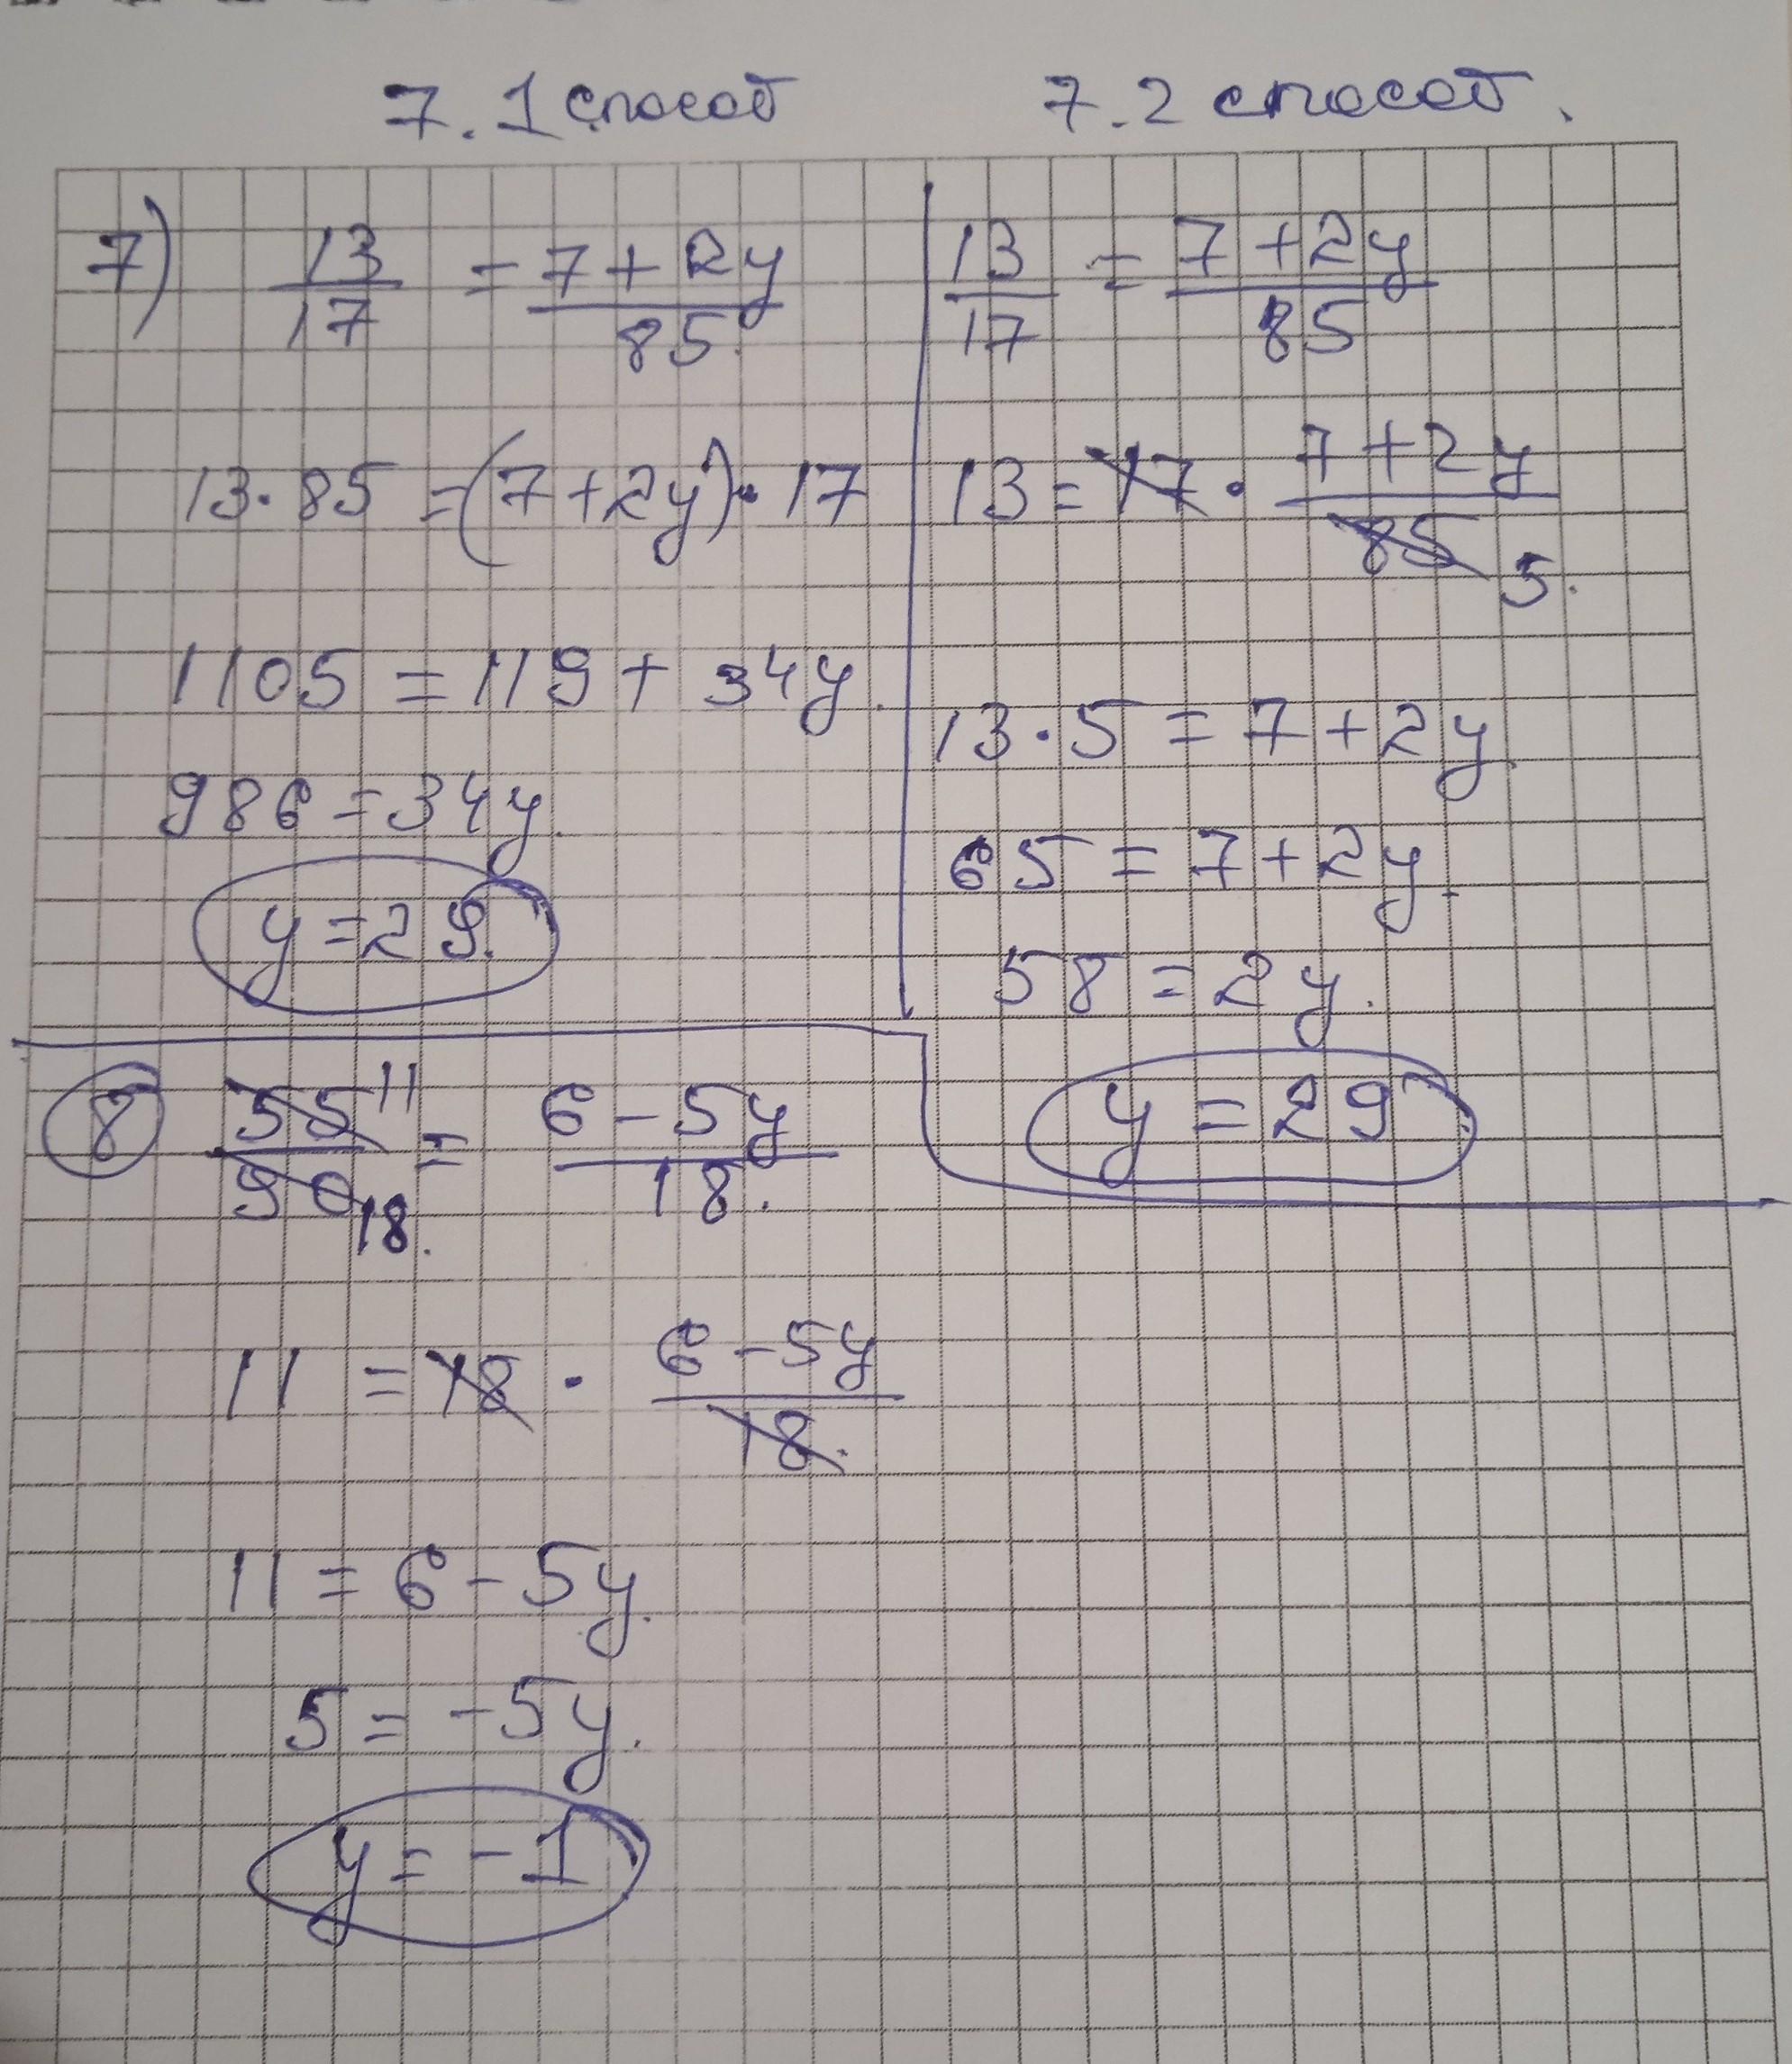 7. 1 способ
7.2 способ.
7) 13/17 = 7 + 2y/85
13·85 = (7 + 2y)·17
1105 = 119 + 34y.
986 = 34y.
y = 29.
13/17 = 7 + 2y/85
13 = 17 · 7 + 2y/85 5.
13·5 = 7 + 2y.
65 = 7 + 2y.
58 = 2y.
y = 29
8 55 11/90 18. = 6 - 5y/18.
11 = 18 · 6 - 5y/18.
11 = 6 - 5y.
5 = -5y.
y = -1